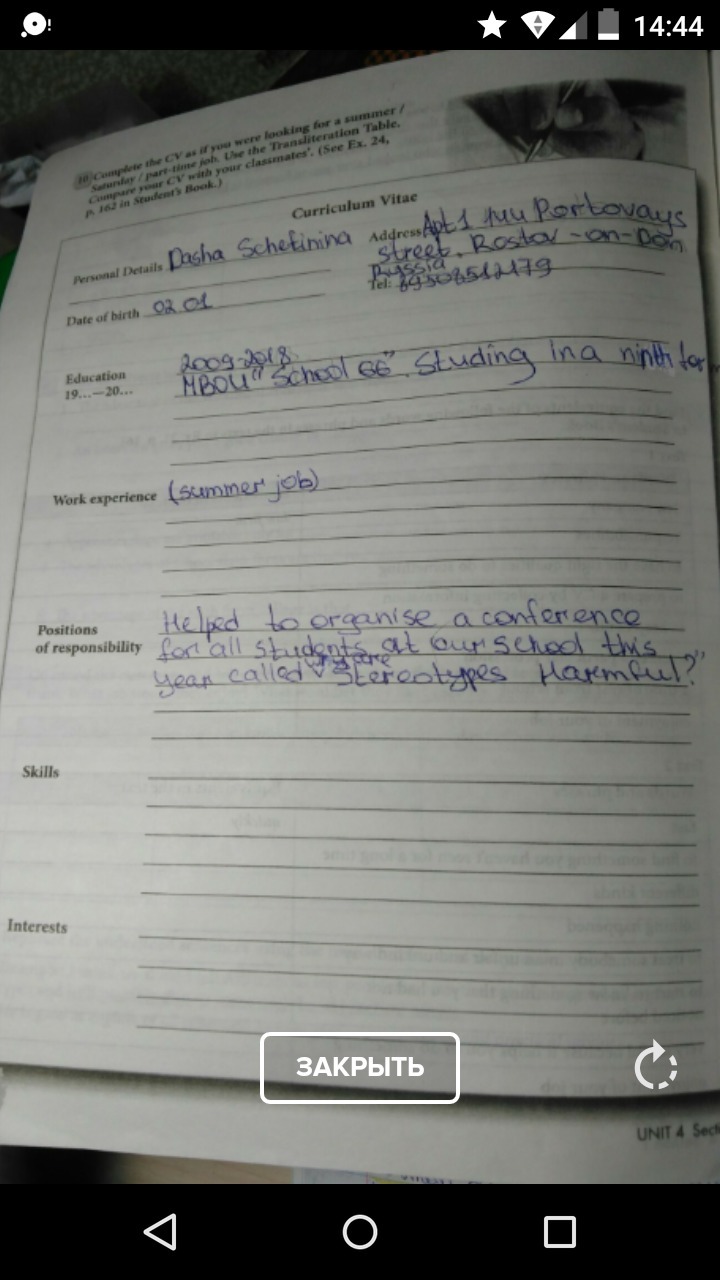 14:44
10 Complete the CV as if you were looking for a summer /
Saturday / part-time job. Use the Transliteration Table.
Compare your CV with your classmates'. (See Ex. 24,
p. 162 in Student's Book.)
Curriculum Vitae
Personal Details Dasha Schetinina
Address Apt 1 144 Portovays
street. Rostov-on-Don
Ryssia
Tel: 89508512179
Date of birth 02 01
Education
19...—20...
2009-2018
MBOU "School 66". Studing in a ninth for
Work experience (summer job)
Positions
of responsibility
Helped to organise a conference
for all students at our school this
year called "Why are Stereotypes Harmful?"
Skills
Interests
ЗАКРЫТЬ
UNIT 4 Sect